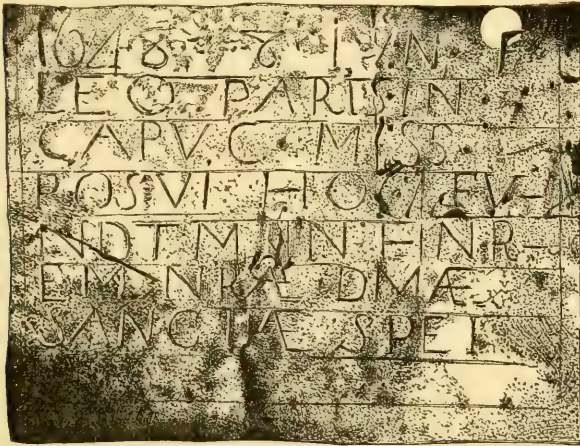 1648 · 8 IVN · F
LEO PARISIN ·
CAPVC · MISS ·
POSVI HOC FV-
NDTM IN HNR-
EM NRÆ DMÆ
SANCTÆ SPEI